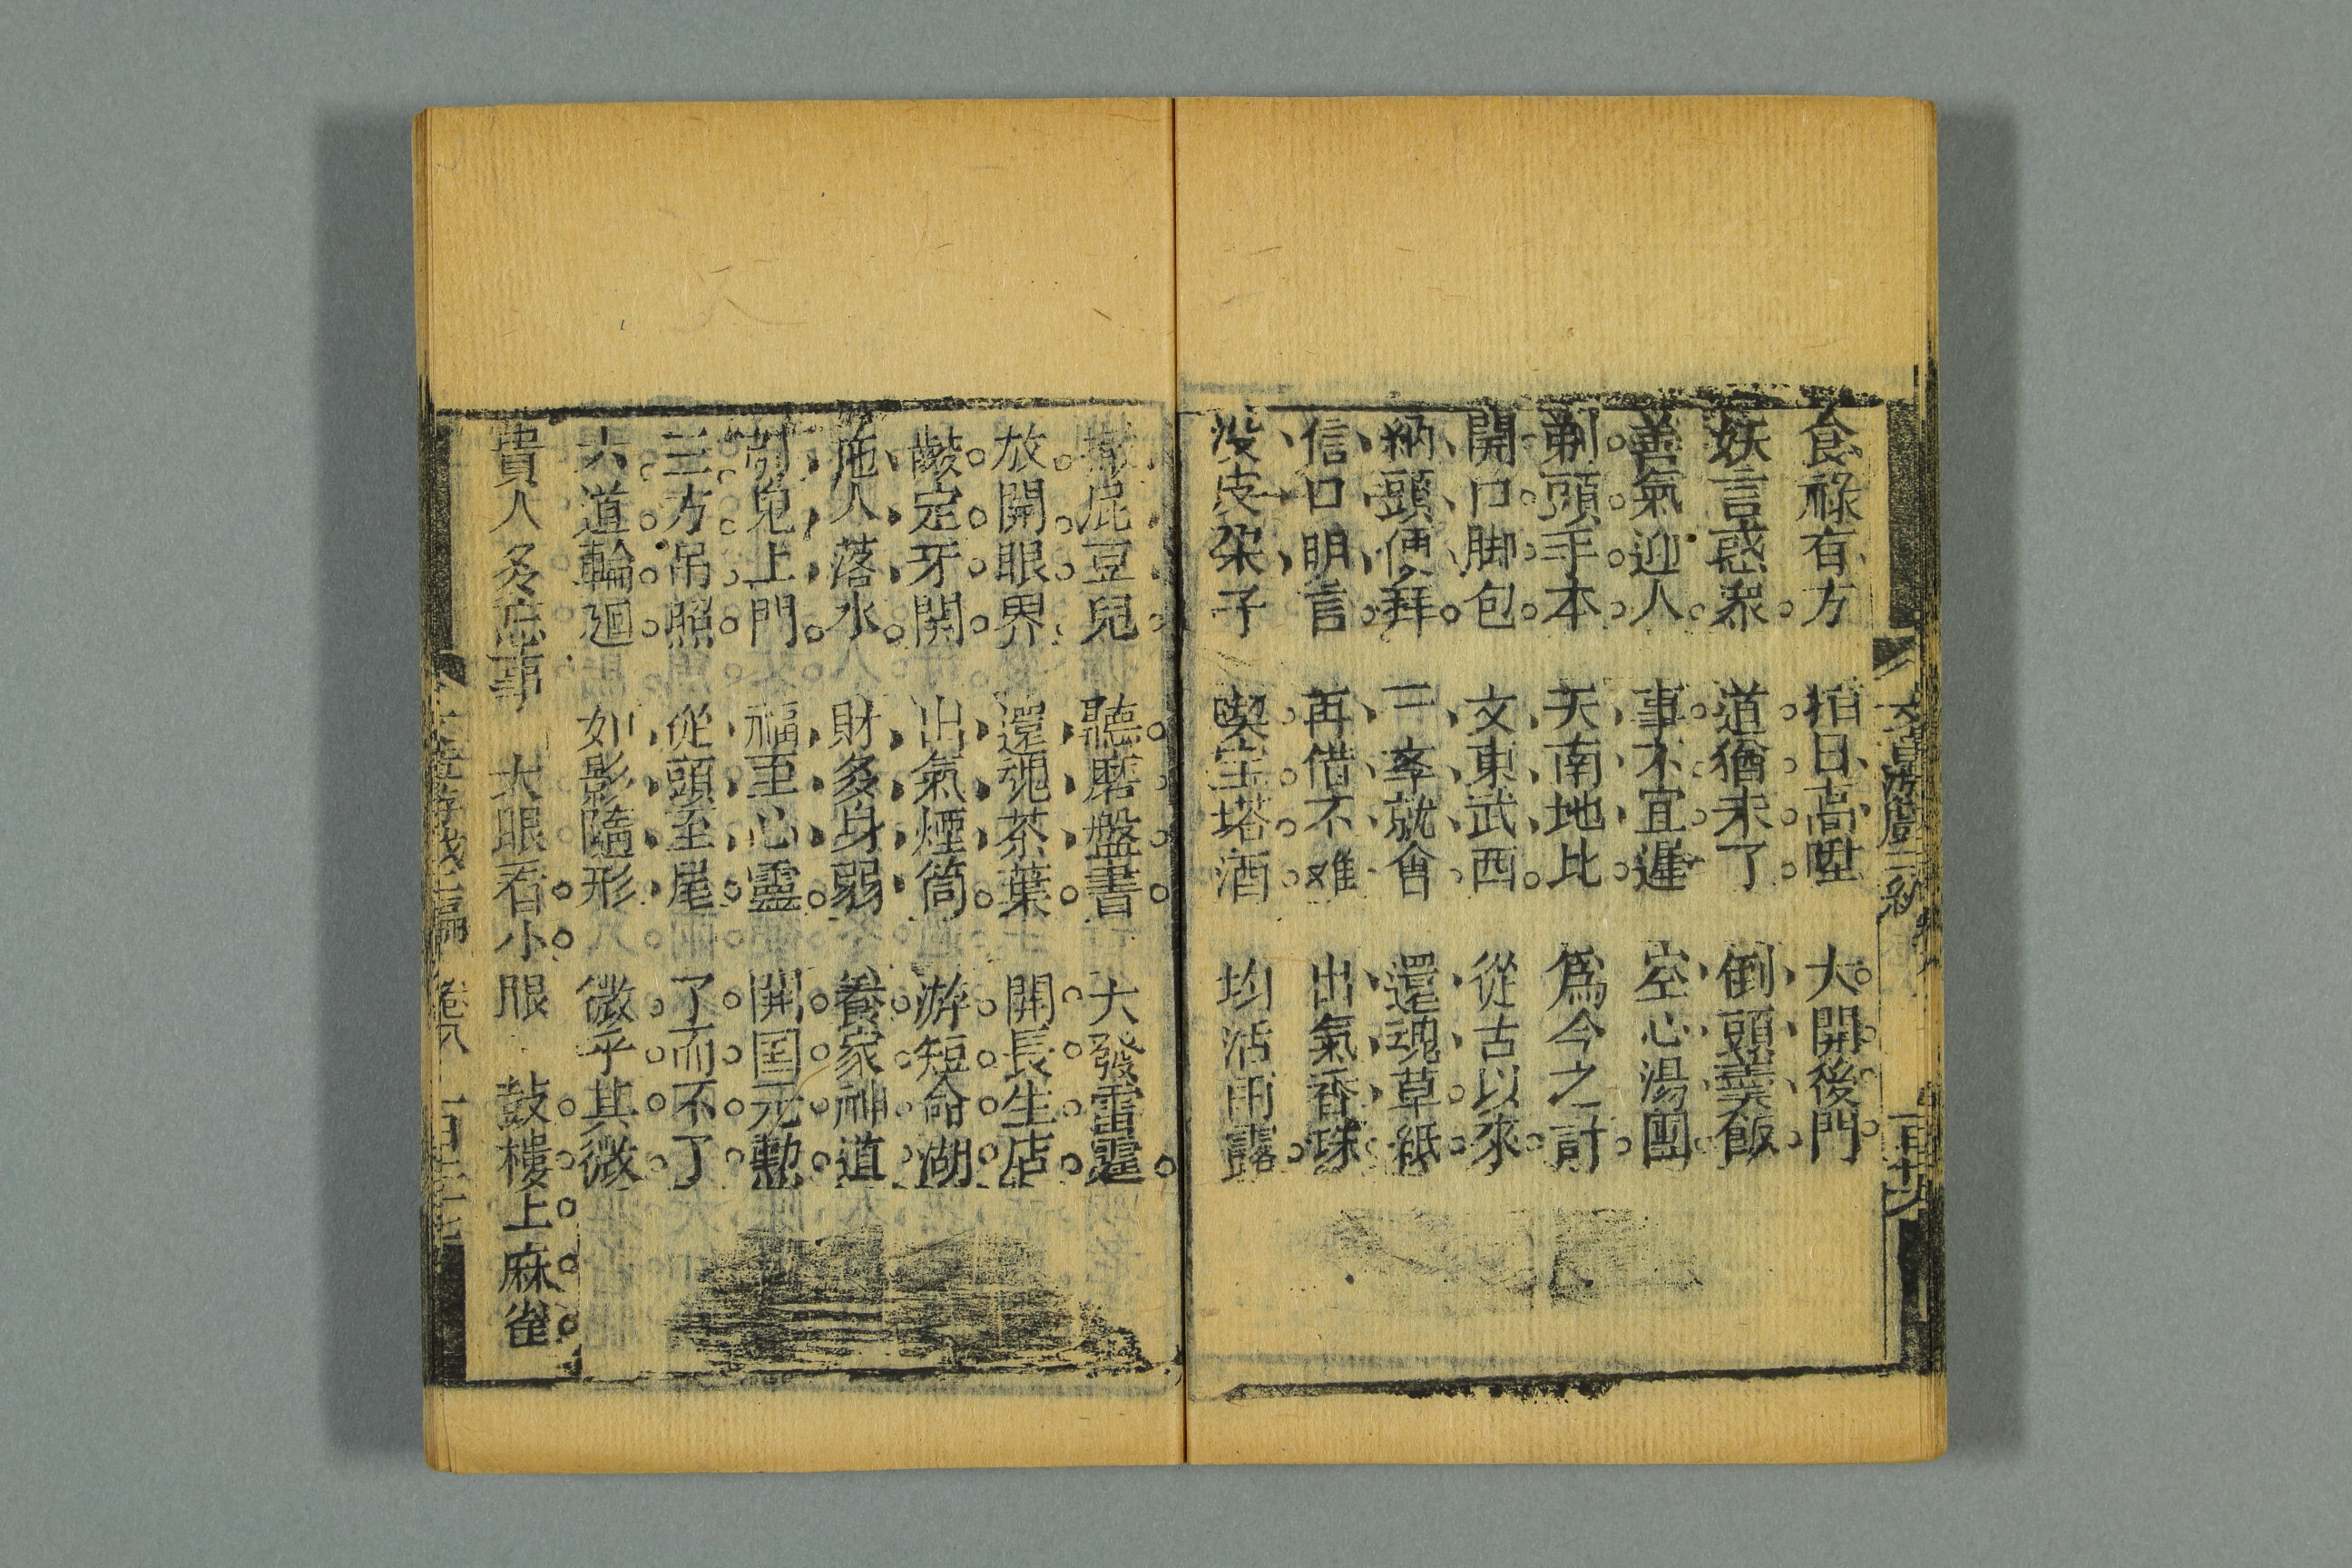 食祿有方 指日高陞 大開後門
妖言惑衆 道猶未了 倒頭羹飯
善氣迎人 事不宜遲 空心湯團
剃頭手本 天南地北 爲今之計
開口脚包 文東武西 從古以來
納頭便拜 一李就會 還魂草紙
信口明言 再借不难 出氣香珠
没皮朶子 喫宝塔酒 均沾雨露
撒屁豆兒 聽磨盤書 大發雷霆
放開眼界 還魂茶葉 開長生店
齩定牙関 出氣煙筒 游短命湖
施人落水 財多身弱 養家神道
引鬼上門 福至心靈 開国元勳
三方吊照 從頭至尾 了而不了
六道輪迴 如影隨形 微乎其微
貴人多忘事 大眼看小眼 鼓樓上麻雀
卷八